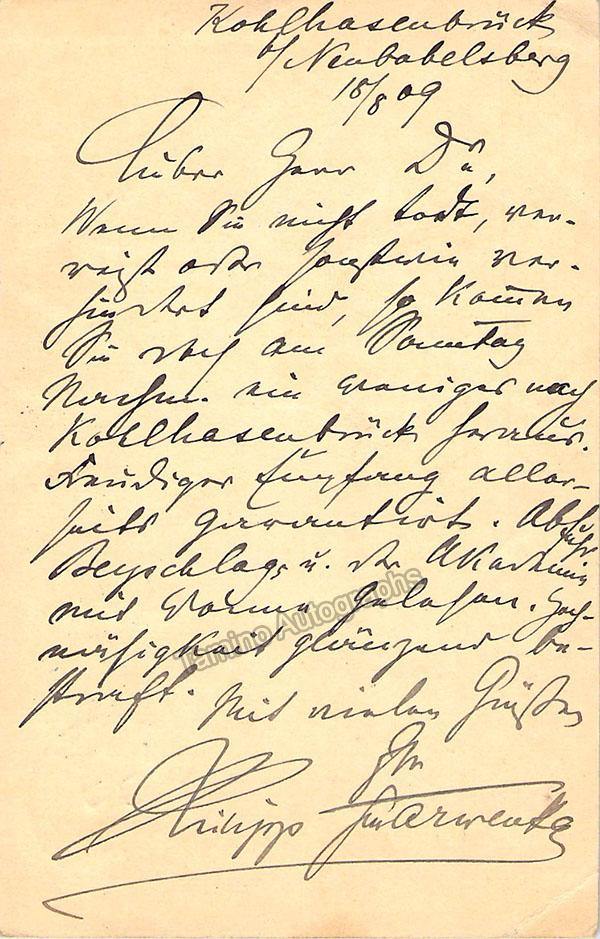 Kohlhasenbrück
b/ Neubabelsberg
18/8 09
Lieber Herr Dr,
Wenn Sie nicht todt, ver-
reist oder sonstwie ver-
hindert sind, so kommen
Sie doch am Sonntag
Nachm. ein weniges nach
Kohlhasenbrück heraus.
Freudiger Empfang aller-
seits garantirt. Abfuhr
Beyschlags u. der Akademie
mit Wonne gelesen. Hoch-
näsigkeit glänzend be-
straft.
Mit vielen Grüßen
Ihr
Philipp Scharwenka
Tamino Autographs